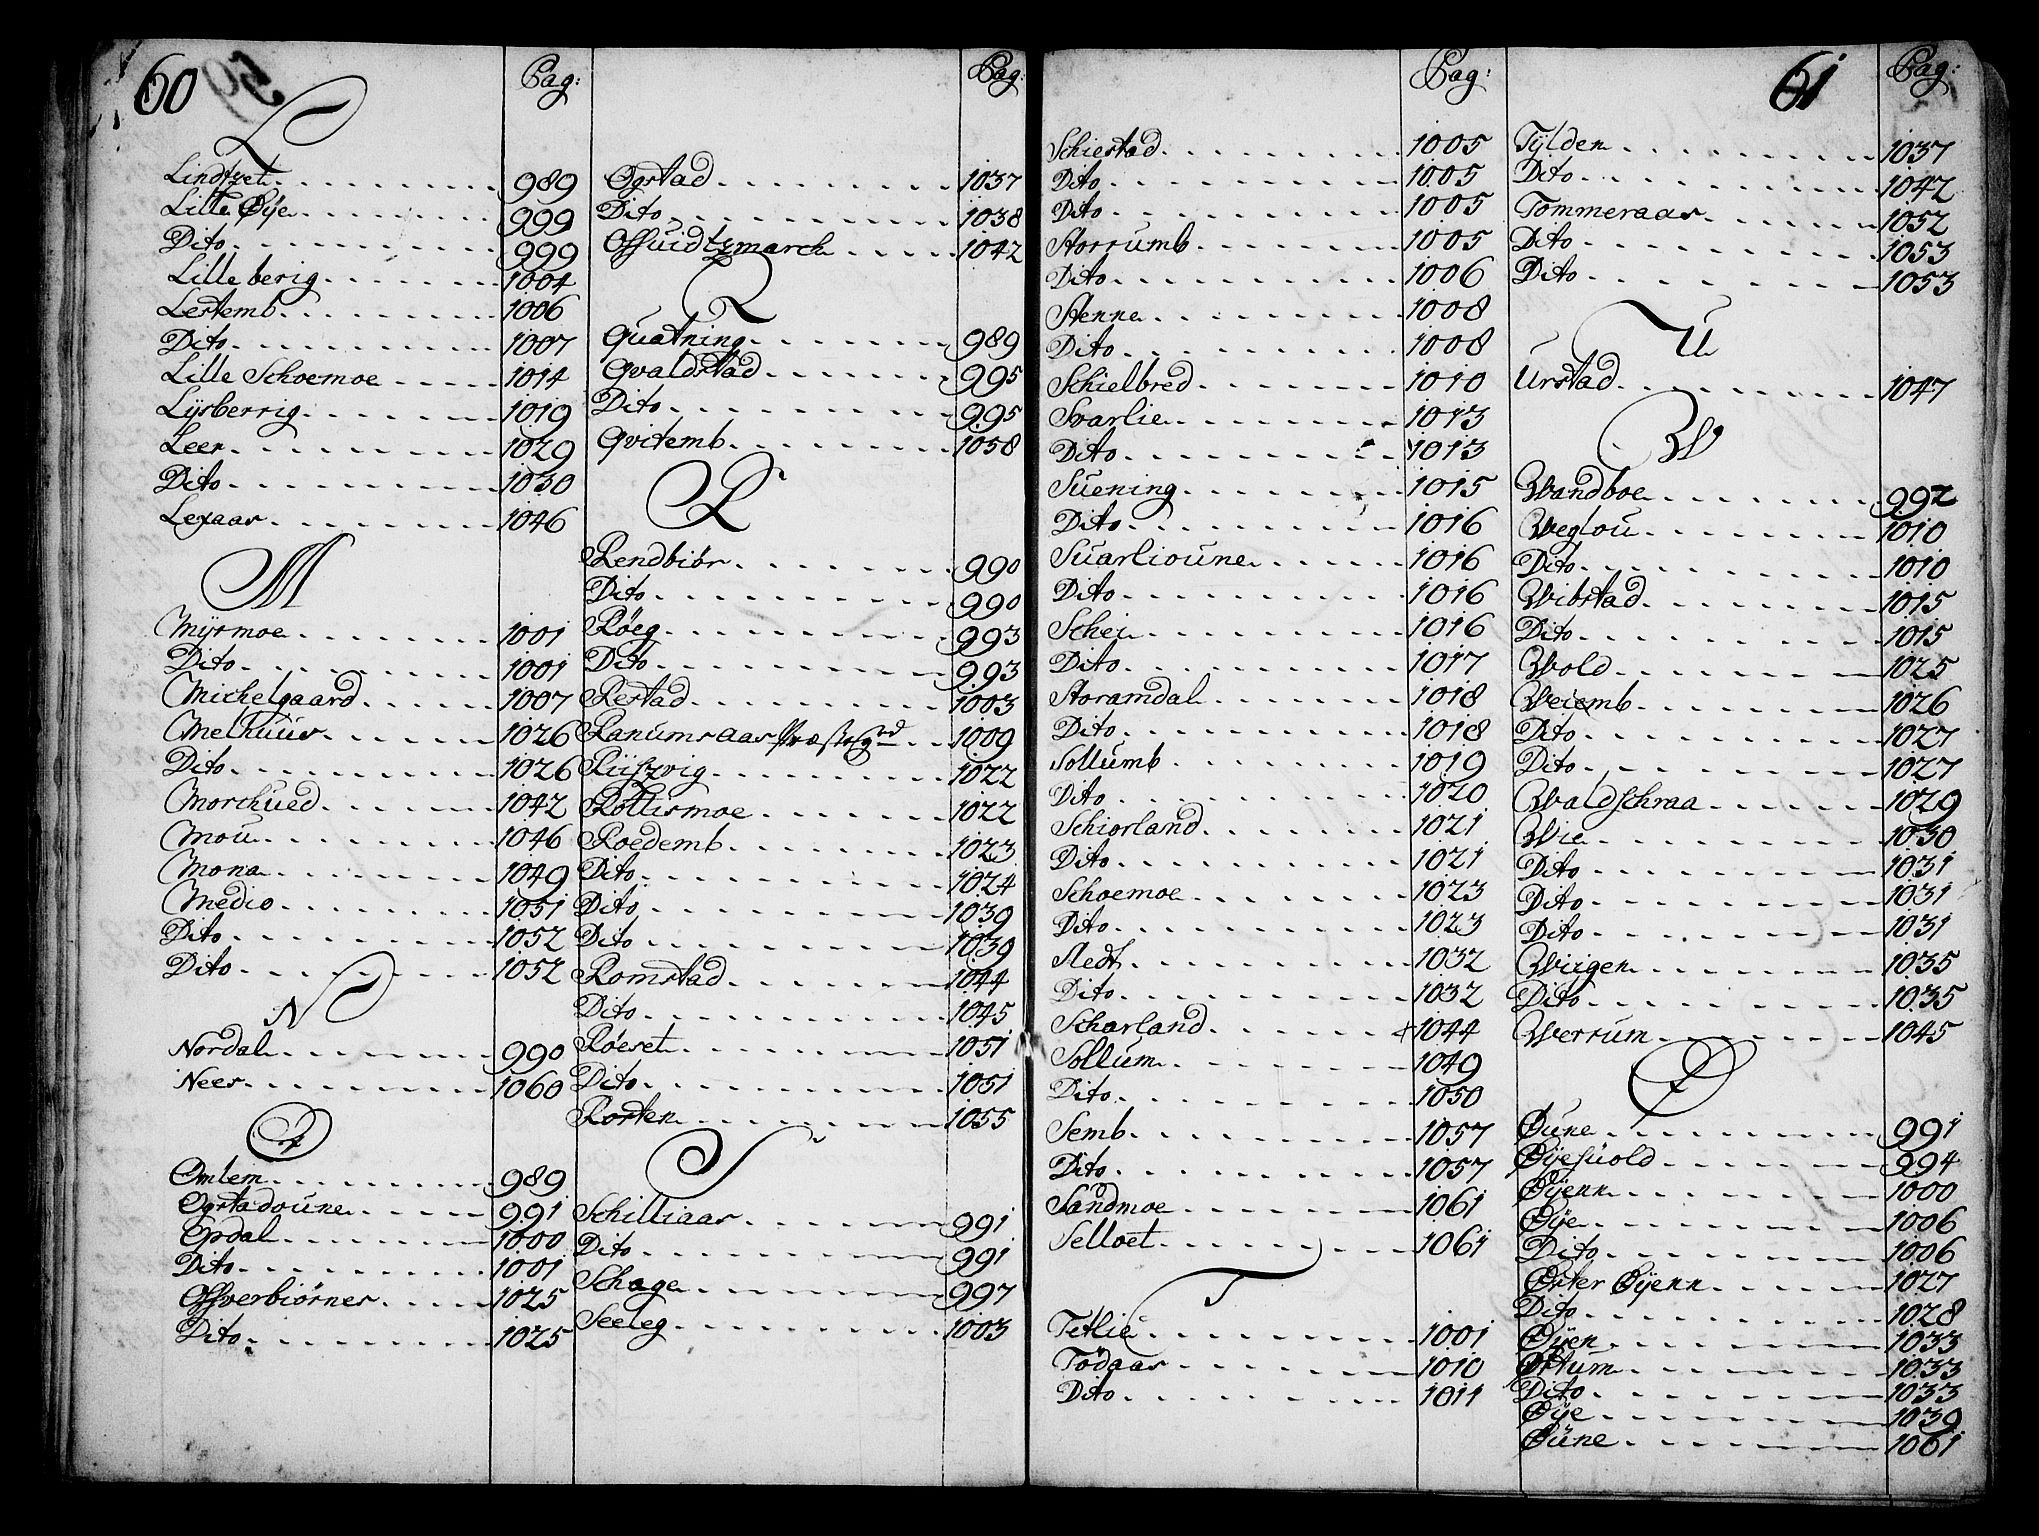 60
Pag:
L
Lindtzet 989
Lille Øÿe 999
Dito 999
Lilleberig 1004
Lertemb 1006
Dito 1007
Lille Schoemoe 1014
Lÿsberrig 1019
Leer 1029
Dito 1030
Lexaas 1046
M
Mÿrmoe 1001
Dito 1001
Michelgaard 1007
Melhuus 1026
Dito 1026
Morchued 1042
Mou 1046
Mona 1049
Medio 1051
Dito 1052
Dito 1052
N
Nordal 990
Nees 1060
O
Omlem 989
Ogstadoune 991
Opdal 1000
Dito 1001
Offverbiørnes 1025
Dito 1025
Pag:
Ogstad 1037
Dito 1038
Offuidtzmarch 1042
Q
Quatning 989
Qvaldstad 995
Dito 995
Qvitemb 1058
R
Rendbiør 990
Dito 990
Røeg 993
Dito 993
Restad 1003
Ranumsaas Præsteg:rd 1009
Riiszvig 1022
Rottismoe 1022
Roedemb 1023
Dito 1024
Dito 1039
Dito 1039
Romstad 1044
Dito 1045
Røeset 1051
Dito 1051
Rorten 1055
S
Schilliaas 991
Dito 991
Schage 997
Seeleg 1003
Pag:
Schiestad 1005
Dito 1005
Dito 1005
Storrumb 1005
Dito 1006
Stenne 1008
Dito 1008
Schielbred 1010
Svarlie 1013
Dito 1013
Suening 1015
Dito 1016
Suarlioune 1016
Dito 1016
Schei 1016
Dito 1017
Storamdal 1018
Dito 1018
Sollumb 1019
Dito 1020
Schiorland 1021
Dito 1021
Schoemoe 1023
Dito 1023
Sledt 1032
Dito 1032
Scharland 1044
Sollum 1049
Dito 1050
Semb 1057
Dito 1057
Sandmoe 1061
Selloet 1061
T
Tetlie 1001
Tødaas 1010
Dito 1011
61
Pag:
Tÿlden 1037
Dito 1042
Tommeraas 1052
Dito 1053
Dito 1053
U
Urstad 1047
W
Wandboe 992
Weglou 1010
Dito 1010
Wibstad 1015
Dito 1015
Wold 1025
Weiemb 1026
Dito 1027
Dito 1027
Waldschraa 1029
Wie 1030
Dito 1031
Dito 1031
Dito 1031
Wiigen 1035
Dito 1035
Werrum 1045
Ø
Øune 991
Øÿesuold 994
Øÿenn 1000
Øÿe 1006
Dito 1006
Øster Øÿenn 1027
Dito 1028
Øÿen 1033
Øttum 1033
Dito 1033
Øÿe 1039
Øune 1061